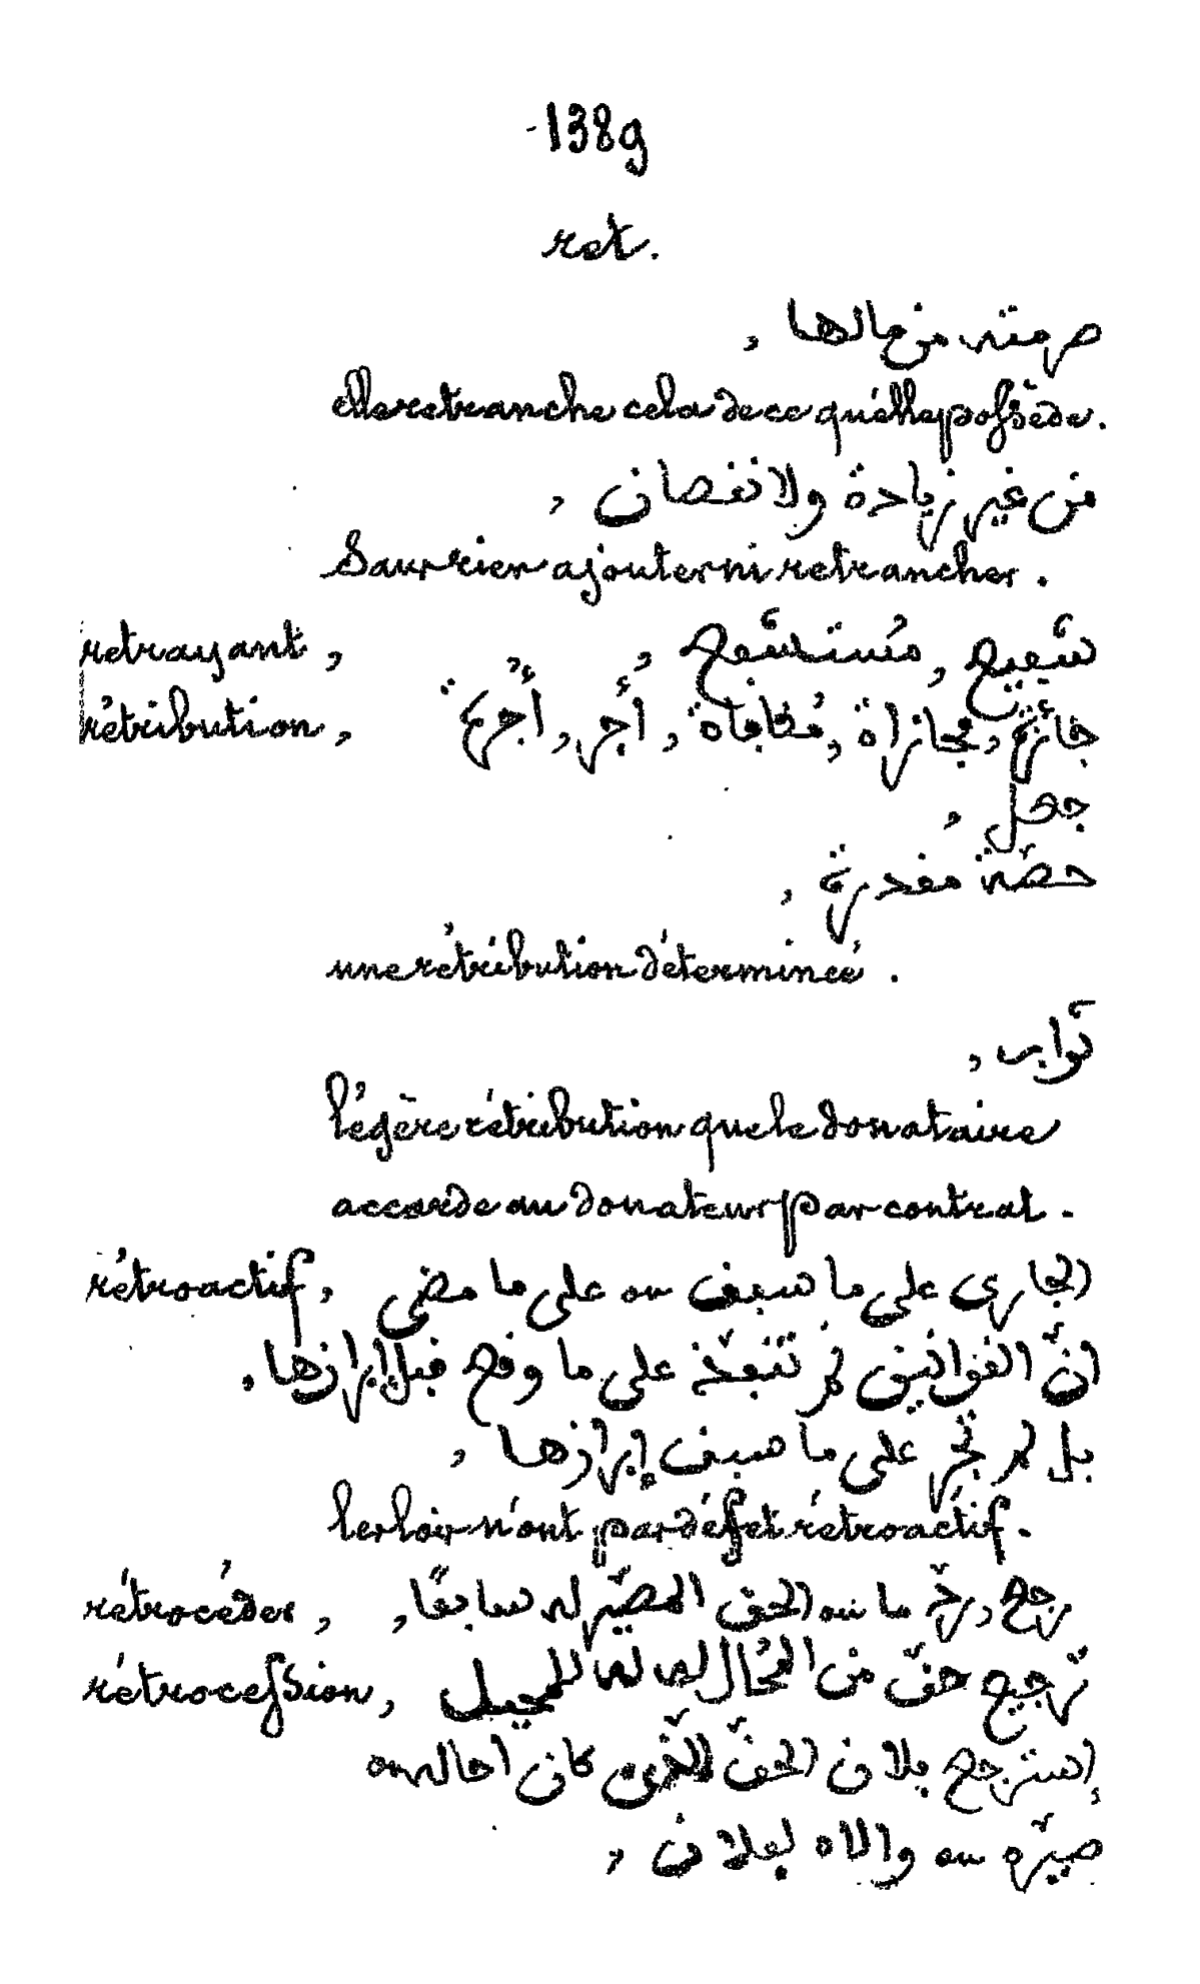 -1389
ret.
صرمته من مالها ,
elle retranche cela de ce qu'elle possède.
من غير زيادة ولا نقصان ,
Sans rien ajouter ni retrancher.
retrayant, شفيع, مُستشفع,
rétribution, جائزة, مجازاة, مُكافاة, أجر, أُجرة
جعل,
حصّة مقدرة,
une rétribution déterminée.
ثواب,
légère rétribution que le donataire
accorde au donateur par contrat.
rétroactif, الجاري على ما سبق ou على ما مضى
انّ القوانين لم تنبعّذ على ما وقع قبل إبرازها,
بل لم تجر على ما سبف إبرازها,
les lois n'ont pas d'éffet rétroactif.
rétrocéder, رجع, ردّ ما ou الحق المصيّر له سابقًا,
rétrocession, ترجيع حقّ من المُحال له للمحيل
إسترجع فلان الحقّ الّذي كان احاله ou
صيّره ou والاه لفلان,